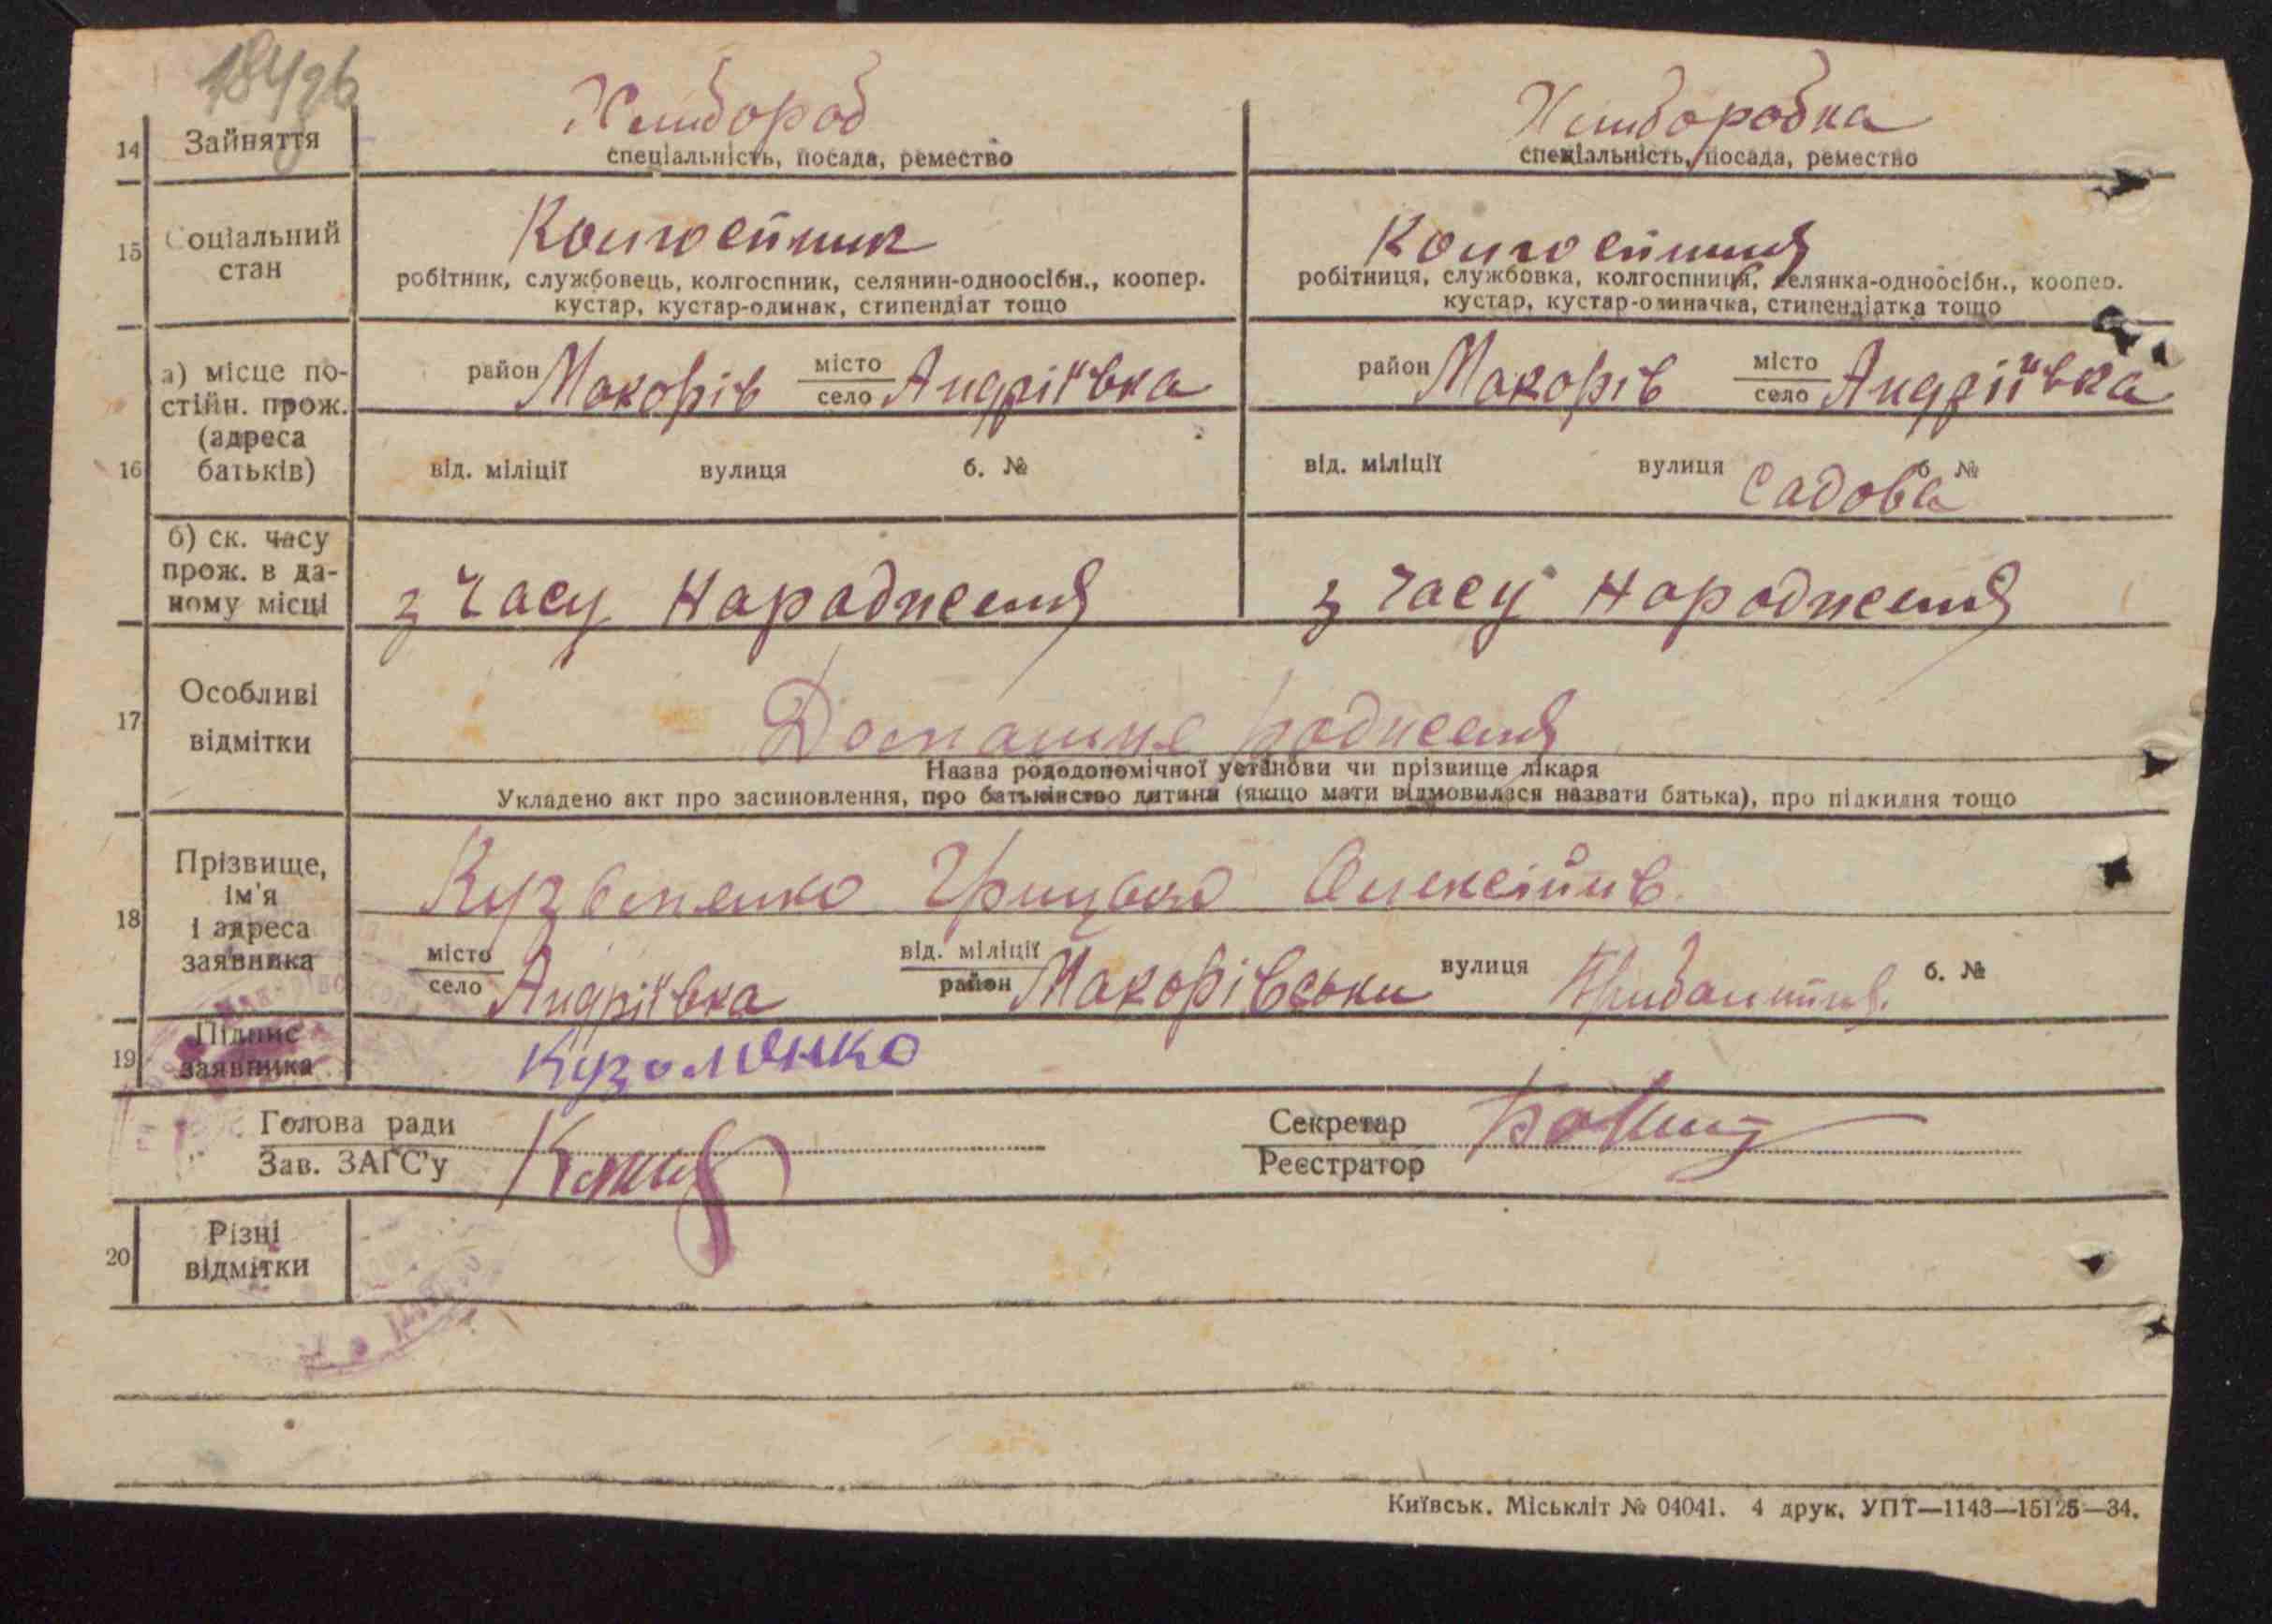 18426
Хлибороб Хлиборобка
14 Зайняття спеціальність, посада, ремество спеціальність, посада, ремество
Колгоспник Колгоспниця
15 Соціальний стан
робітник, службовець, колгоспник, селянин-одноосібн., коопер. робітниця, службовка, колгоспниця, селянка-одноосібн., коопер.
кустар, кустар-одинак, стипендіат тощо кустар, кустар-одиначка, стипендіатка тощо
16 а) місце постійн. прож. (адреса батьків)
район Макорів місто село Андріївка район Макорів місто село Андріївка
від. міліції вулиця б. № від. міліції вулиця Садова б. №
б) ск. часу прож. в даному місці
з часу народження з часу народження
17 Особливі відмітки
Домашнє родження
Назва рододопомічної установи чи прізвище лікаря
Укладено акт про засиновлення, про батьківство дитини (якщо мати відмовилася назвати батька), про підкидня тощо
18 Прізвище, ім'я і адреса заявника
Кузьменко Грицько Олексійив
місто село Андріївка від. міліції район Макорівськи вулиця б. №
19 Підпис заявника
Кузьменко
Голова ради Секретар
Зав. ЗАГС'у Реєстратор
20 Різні відмітки
Київськ. Міськліт № 04041. 4 друк. УПТ—1143—15125—34.